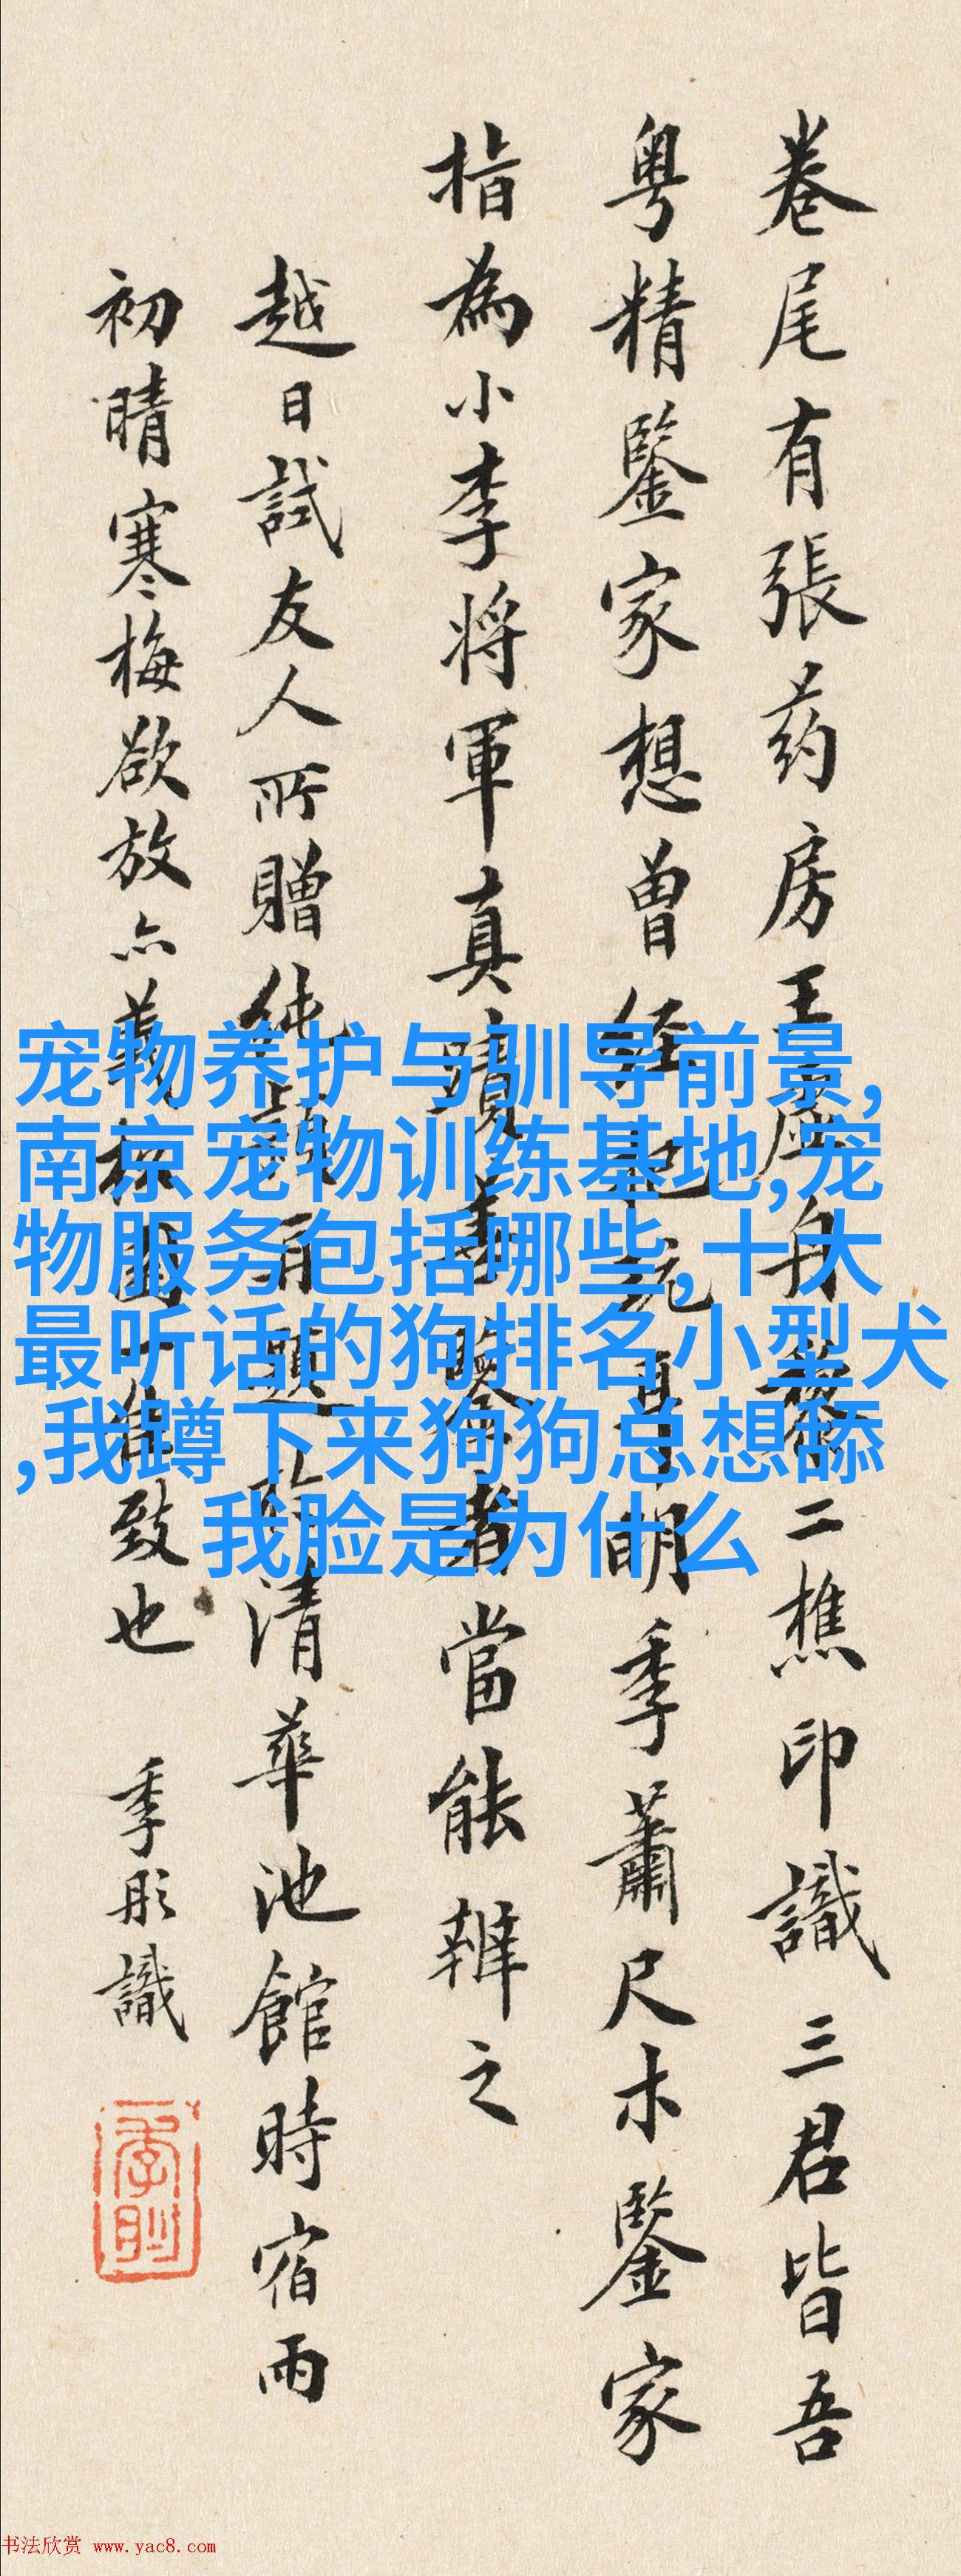 卷尾有張药房王
二樵印識三君皆吾
粤精鑒家想曾經
明季蕭尺木鑒家
指為小李將軍真蹟
者當能辨之
越日試友人所贈純
清華池館時宿雨
初晴寒梅欲放亦
致也
季彤識
宠物养护与驯导前景,
南京宠物训练基地,宠
物服务包括哪些,十大
最听话的狗排名小型犬
,我蹲下来狗狗总想舔
我脸是为什么
书法欣赏 www.yac8.com